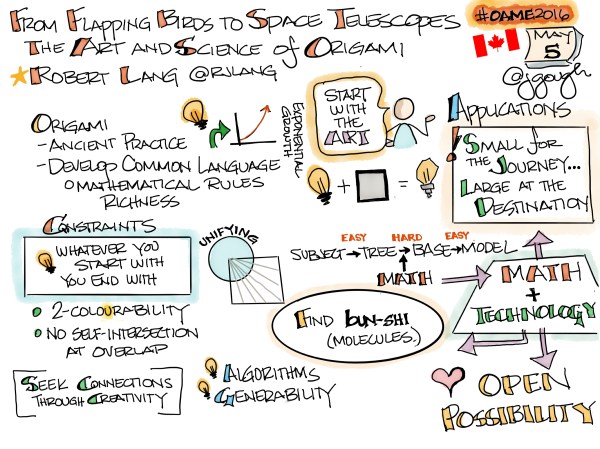 From Flapping Birds to Space Telescopes
The Art and Science of Origami
Robert Lang @rjlang
#OAME2016
MAY
5
@jgough
Origami
- Ancient Practice
- Develop Common Language
o Mathematical Rules
Richness
Exponential
Growth
Start
with
the
Art
Applications
! Small for
the Journey...
Large at the
Destination
+
=
Constraints
Whatever you
start with
you end with
2-colourability
No self-intersection
at overlap
Unifying
Easy Hard Easy
Subject → Tree → Base → Model
Math
Find bun-shi
(molecules.)
Math
+
Technology
Seek Connections
Through Creativity
Algorithms
Generability
Open
Possibility